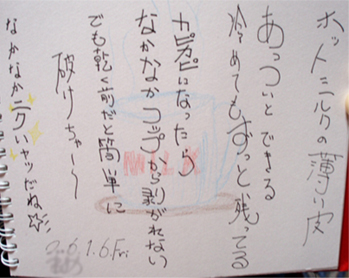 ホットミルクの薄い皮
あっついとできる
冷めてもずっと残ってる
カピカピになったり
なかなかコップから剥がれない
でも乾く前だと簡単に
破けちゃ〜う
なかなかニクいヤツだね
MILK
2006.1.6.Fri